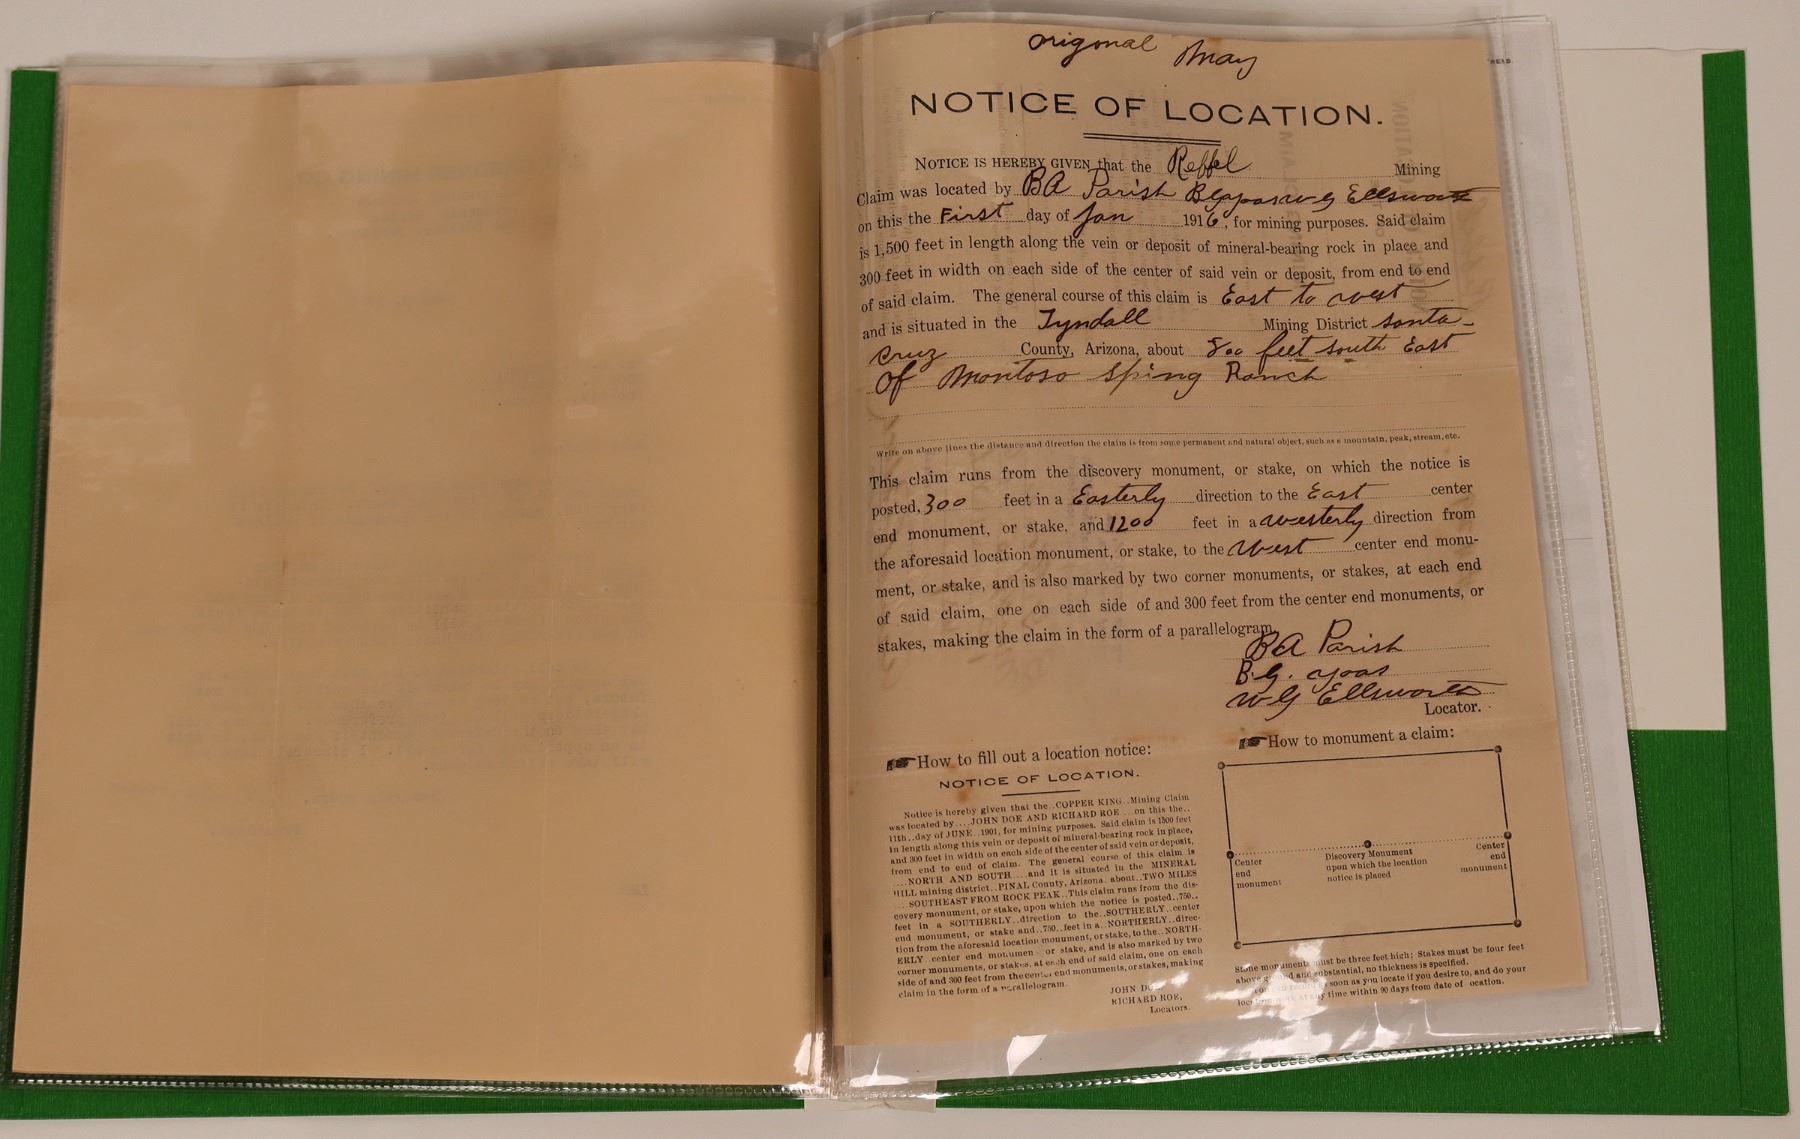 origonal May
NOTICE OF LOCATION.
NOTICE IS HEREBY GIVEN that the Reffel Mining
Claim was located by BA Parish B.G. yoas W G Ellsworth
on this the First day of Jan 1916, for mining purposes. Said claim
is 1,500 feet in length along the vein or deposit of mineral-bearing rock in place and
300 feet in width on each side of the center of said vein or deposit, from end to end
of said claim. The general course of this claim is East to west
and is situated in the Tyndall Mining District Santa-
Cruz County, Arizona, about 800 feet south East
Of Montoso Sping Ranch
Write on above lines the distance and direction the claim is from some permanent and natural object, such as a mountain, peak, stream, etc.
This claim runs from the discovery monument, or stake, on which the notice is
posted, 300 feet in a Easterly direction to the East center
end monument, or stake, and 1200 feet in a westerly direction from
the aforesaid location monument, or stake, to the West center end monu-
ment, or stake, and is also marked by two corner monuments, or stakes, at each end
of said claim, one on each side of and 300 feet from the center end monuments, or
stakes, making the claim in the form of a parallelogram.
BA Parish
B.G. yoas
W G Ellsworth
Locator.
How to fill out a location notice:
NOTICE OF LOCATION.
Notice is hereby given that the..COPPER KING..Mining Claim
was located by....JOHN DOE AND RICHARD ROE...on this the..
11th..day of JUNE..1901, for mining purposes. Said claim is 1500 feet
in length along this vein or deposit of mineral-bearing rock in place,
and 300 feet in width on each side of the center of said vein or deposit,
from end to end of claim. The general course of this claim is
....NORTH AND SOUTH....and it is situated in the MINERAL
HILL mining district..PINAL County, Arizona. about..TWO MILES
...SOUTHEAST FROM ROCK PEAK..This claim runs from the dis-
covery monument, or stake, upon which the notice is posted..750..
feet in a SOUTHERLY..direction to the..SOUTHERLY..center
end monument, or stake and..750..feet in a..NORTHERLY..direc-
tion from the aforesaid location monument, or stake, to the..NORTH-
ERLY..center end monumen or stake, and is also marked by two
corner monuments, or stakes, at each end of said claim, one on each
side of and 300 feet from the center end monuments, or stakes, making
claim in the form of a parallelogram.
JOHN DOE
RICHARD ROE,
Locators.
How to monument a claim:
Center
end
monument
Discovery Monument
upon which the location
notice is placed
Center
end
monument
Stone monuments must be three feet high: Stakes must be four feet
above ground and substantial, no thickness is specified.
record soon as you locate if you desire to, and do your
at any time within 90 days from date of ocation.